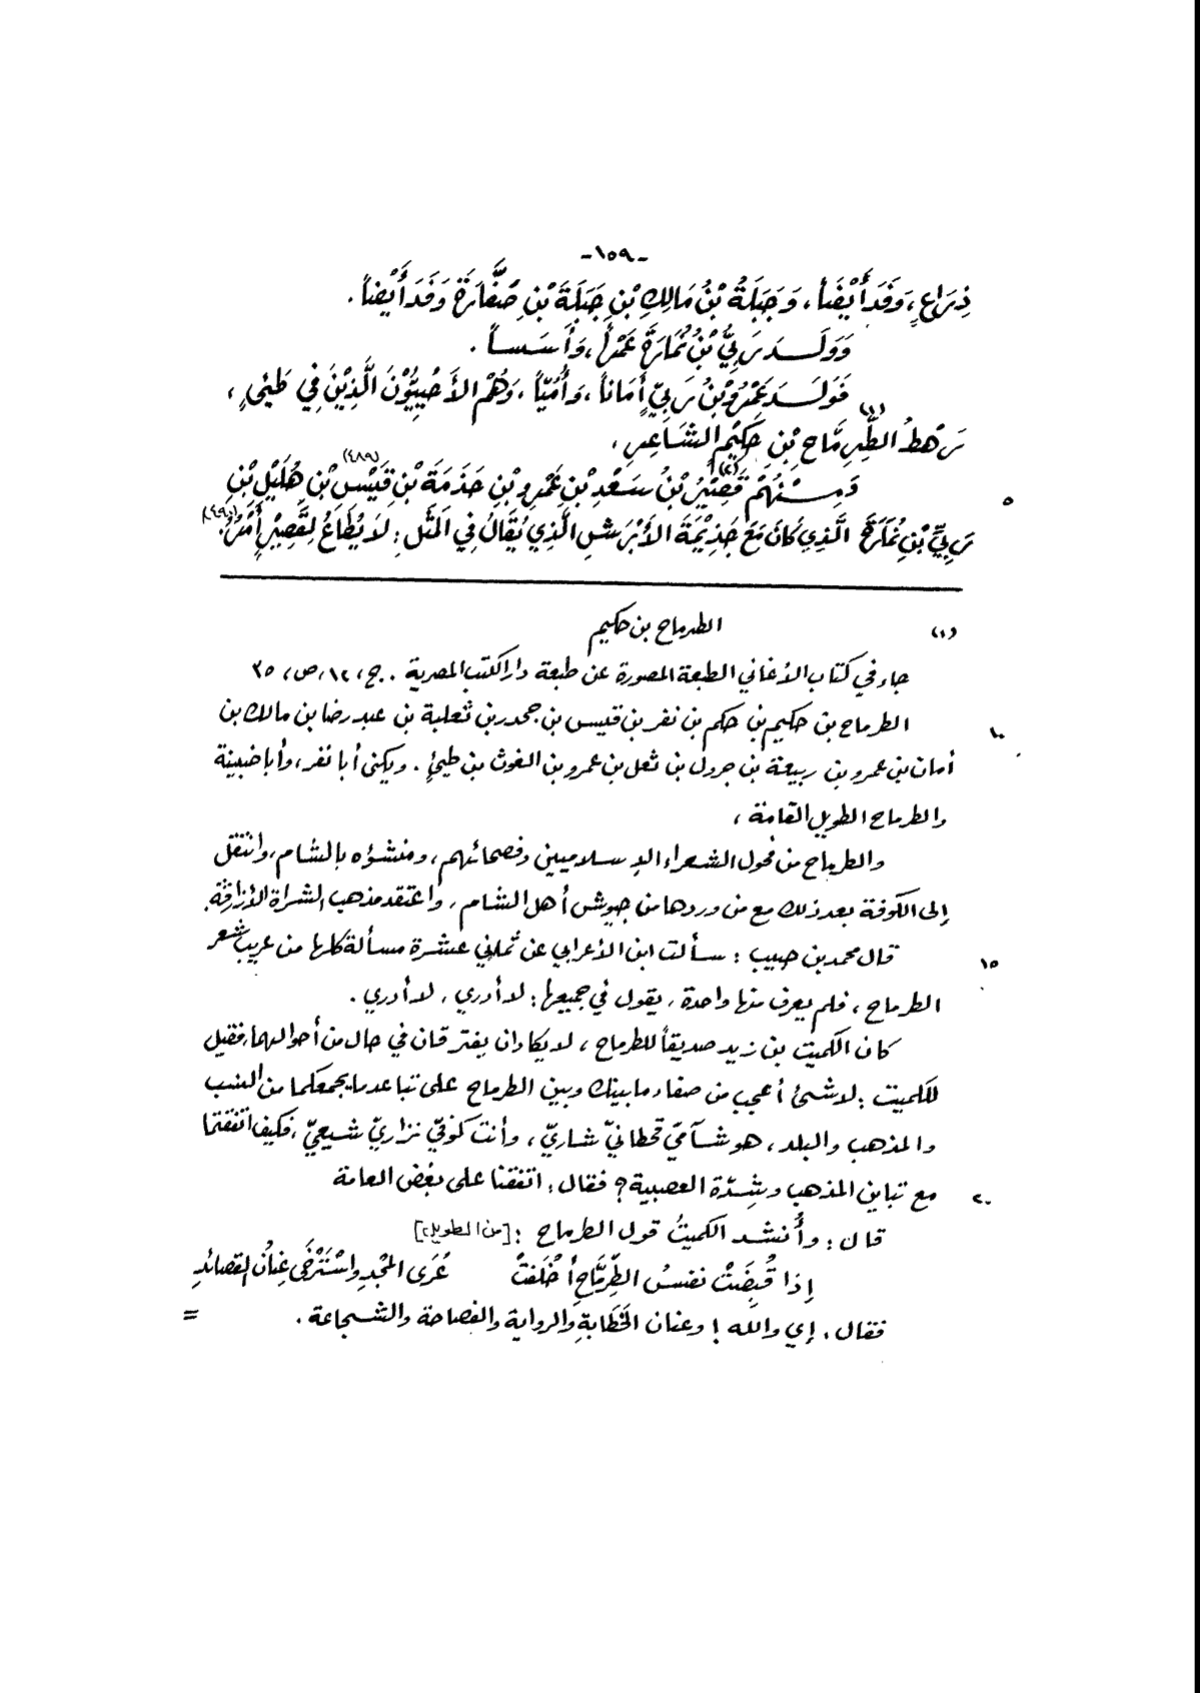 -١٥٩-
ذِرَاعٍ، وَفَدَ أَيْضَاً، وَجَبَلَةُ بْنُ مَالِكِ بْنِ جَبَلَةَ بْنِ صَفَّارَةَ وَفَدَ أَيْضاً.
وَوَلَـدَ رَبِيُّ بْنُ نُمَارَةَ عَمْراً، وَأَسَساً.
فَوَلَـدَ عَمْرُو بْنُ رَبِيٍّ أَمَاناً، وَأُمَيّاً، وَهُمُ الأَحْيِيُّوْنَ الَّذِيْنَ فِي طَيِّىءٍ،
رَهْطُ الطِّرِمَّاحِ (١) بْنِ حَكِيْمٍ الشَاعِرِ،
٥ وَمِـنْهُمْ قَصِيْرُ (٢) بْنُ سَعْدِ بْنِ عَمْرِو بْنِ جَذَمَةَ بْنِ قَيْسِ (٤٨٩) بْنِ هُلَيْلِ بْنِ
رَبِيِّ بْنِ نُمَارَةَ الَّذِي كَانَ مَعَ جَذِيْمَةَ الأَبْرَشِ الَّذِي يُقَالُ فِي الْمَثَلِ: لَا يُطَاعُ لِقَصِيْرٍ أَمْرٌ (٤٩٠).
(١) الطرماح بن حكيم
جاء في كتاب الأغاني الطبعة المصورة عن طبعة دار الكتب المصرية. ج، ١٢، ص، ٣٥
١٠ الطرماح بن حكيم بن حكم بن نفر بن قيس بن جحدر بن ثعلبة بن عبد رضا بن مالك بن
أمان بن عمرو بن ربيعة بن جرول بن ثعل بن عمرو بن الغوث بن طيئٍ. ويكنى أبا نفر، وأبا ضبينة
والطرماح الطويل القامة،
والطرماح من فحول الشعراء الإسلاميين وفصحائهم، ومنشؤه بالشام، وانتقل
إلى الكوفة بعد ذلك مع من وردها من جيوش أهل الشام، واعتقد مذهب الشراة الأزارقة.
١٥ قال محمد بن حبيب: سألت ابن الأعرابي عن ثماني عشرة مسألة كلها من غريب شعر
الطرماح، فلم يعرف منها واحدة، يقول في جميعها: لا أدري، لا أدري.
كان الكميت بن زيد صديقاً للطرماح، لا يكادان يفترقان في حال من أحوالهما، فقيل
للكميت: لا شئ أعجب من صفاء ما بينك وبين الطرماح على تباعد ما يجمعكما من النسب
والمذهب والبلد، هو شآميّ قحطانيّ شاريّ، وأنت كوفيّ نزاريّ شيعيّ، فكيف اتفقتما
٢٠ مع تباين المذهب وشِدّة العصبية؟ فقال: اتفقنا على بغض العامة
قال: وأُنشد الكميتُ قول الطرماح: [من الطويل]
إِذَا قُبِضَتْ نفسُ الطِّرِمَّاحِ أَخْلَقَتْ عُرَى الْمَجْدِ واسْتَرْخَى عِنانُ القصائدِ
فقال. إي والله! وعنان الخَطَابةِ والرواية والفصاحة والشجاعة. =